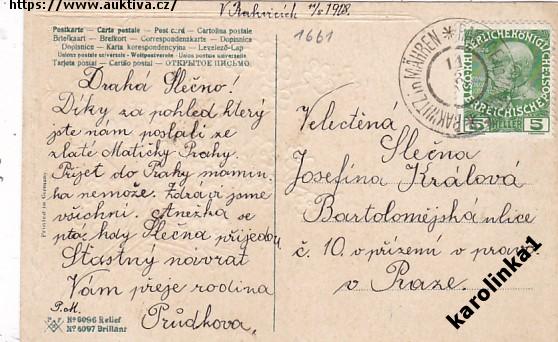 https://www.auktiva.cz/
V Rakvicích 11/8 1908.
1661
Postkarte — Carte postale — Post card — Cartolina postale
Briefkaart — Brefkort — Correspondenzkarte — Dopisnice
Dopisnice — Karta korespondencyjna — Levelező-Lap
Unione postale universale — Weltpostverein — Union postale universelle
Tarjeta postal — Cartão postal — ОТКРЫТОЕ ПИСЬМО.
Drahá Slečno!
Díky za pohled který
jste nám poslali ze
zlaté Matičky Prahy.
Přijet do Prahy mamin.
ka nemože. Zdrávi jsme
všichni. Anežka se
ptá, kdy Slečna přijedou
Štastny navrat
Vám přeje rodina
P.M.
Průdkova.
Printed in Germany
No 6096 Relief
No 6097 Brillant
RAKWITZ in MÄHREN
KAISERLICHE KÖNIGLICHE
OESTERREICHISCHE POST
5 HELLER 5
Velectěná
Slečna
Josefína Králová
Bartolomějská ulice
č. 10. v přízení v pravo
v Praze.
karolinka1